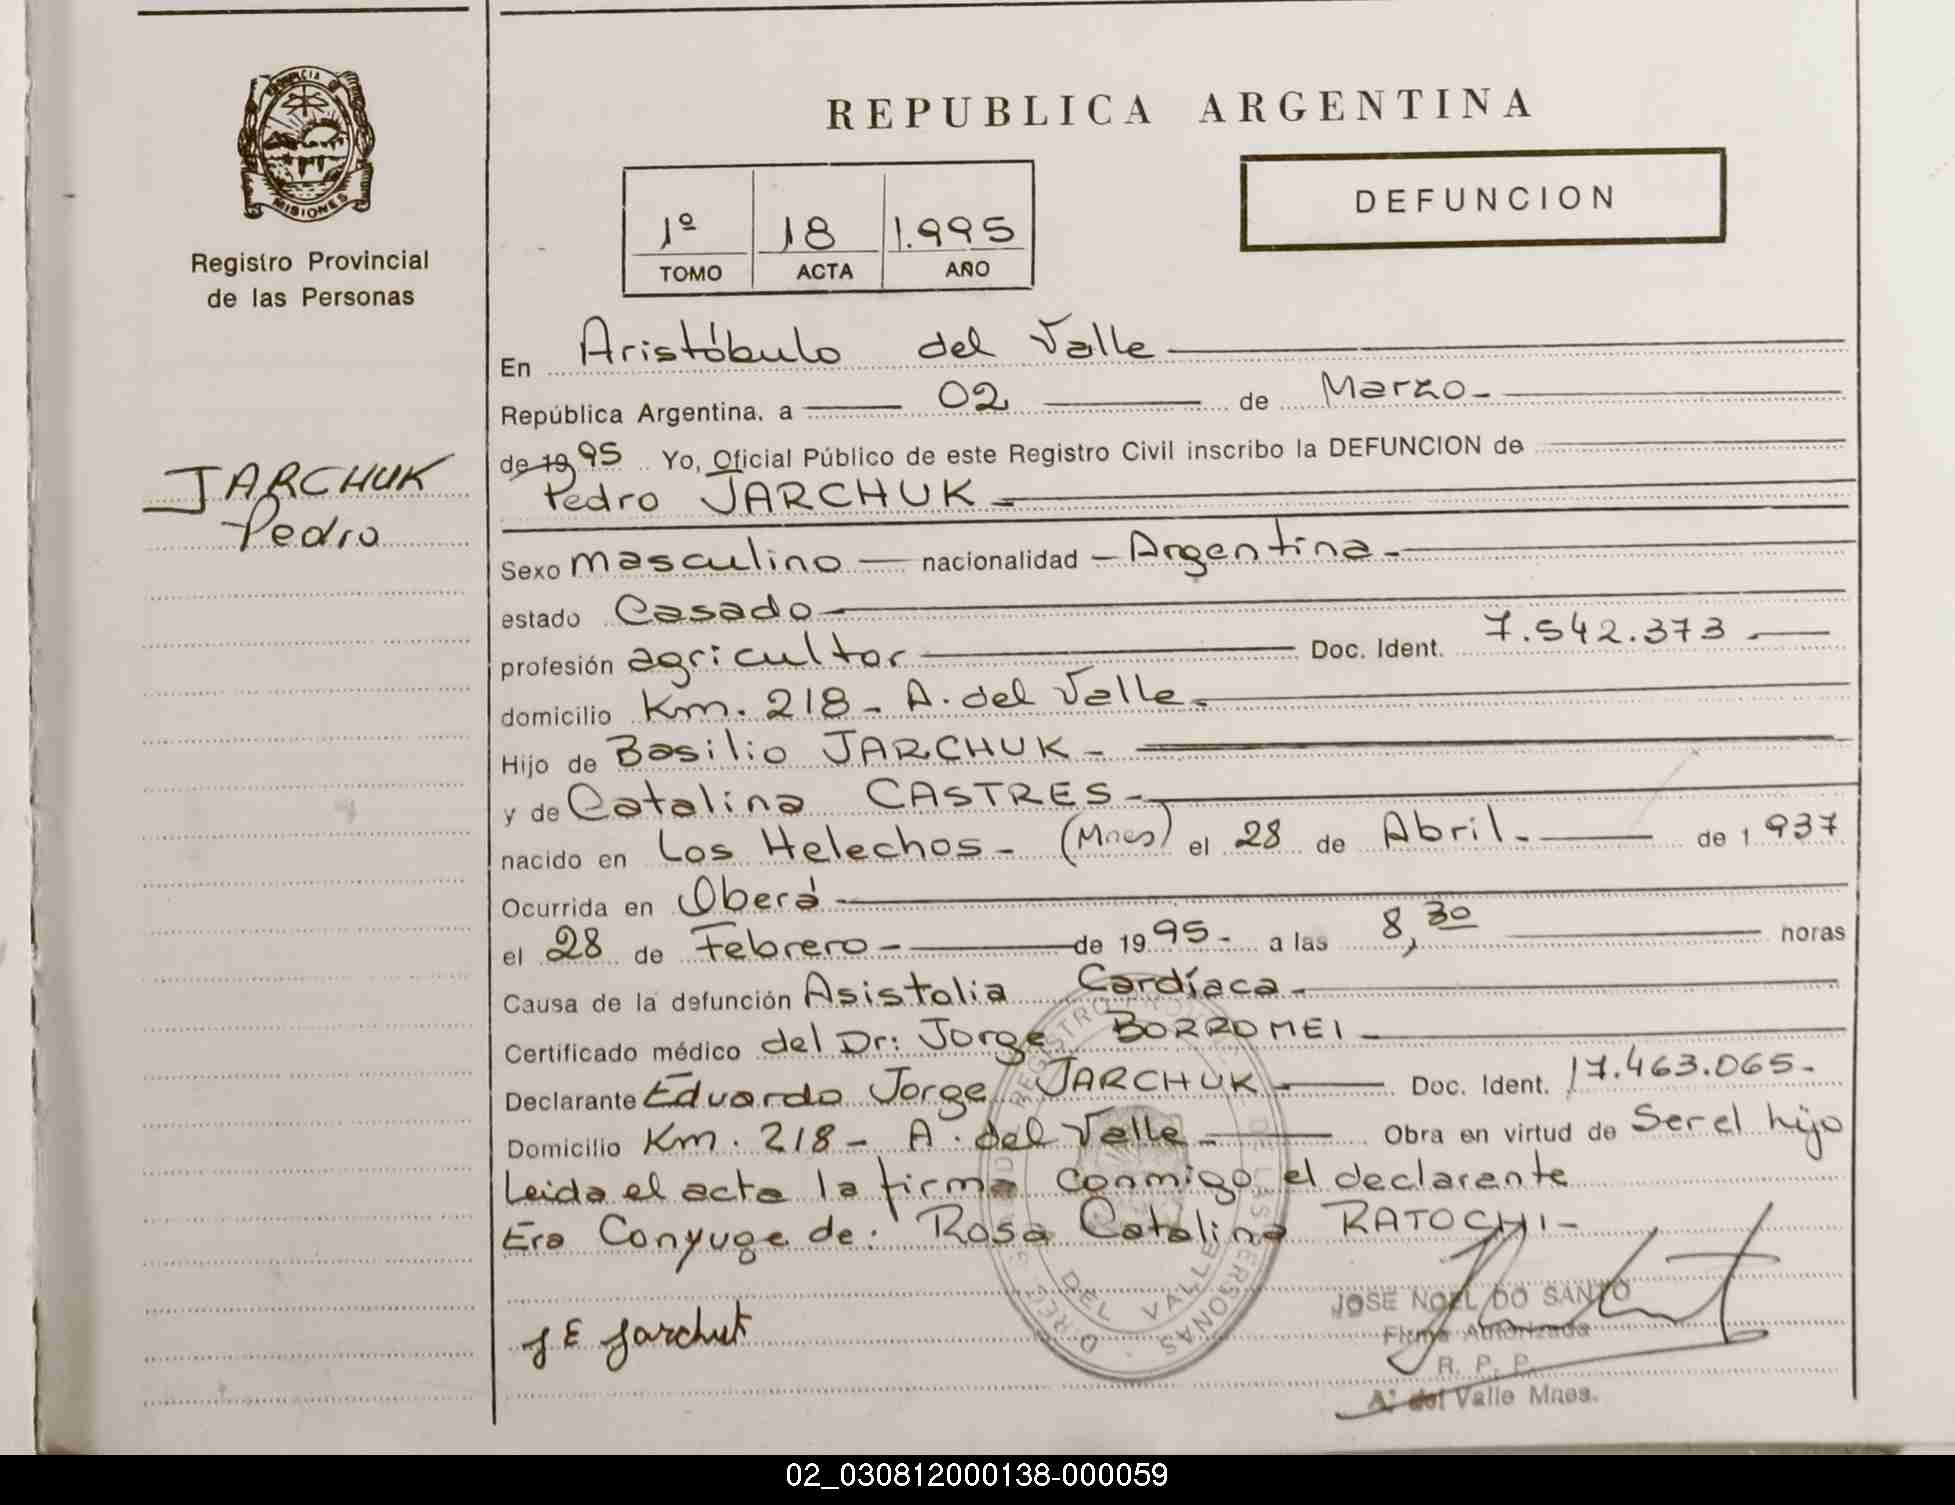 PROVINCIA DE
MISIONES
Registro Provincial
de las Personas
JARCHUK
Pedro
REPUBLICA ARGENTINA
1º 18 1.995
TOMO ACTA AÑO
DEFUNCION
En Aristóbulo del Valle
República Argentina, a 02 de Marzo
de 19 95 Yo, Oficial Público de este Registro Civil inscribo la DEFUNCION de
Pedro JARCHUK
Sexo masculino nacionalidad Argentina
estado Casado
profesión agricultor Doc. Ident. 7.542.373
domicilio Km. 218 - A. del Valle
Hijo de Basilio JARCHUK
y de Catalina CASTRES
nacido en Los Helechos - (Mnes) el 28 de Abril de 1 937
Ocurrida en Oberá
el 28 de Febrero de 19 95 a las 8,30 horas
Causa de la defunción Asistolia Cardíaca
Certificado médico del Dr: Jorge BORROMEI
Declarante Eduardo Jorge JARCHUK Doc. Ident. 17.463.065
Domicilio Km. 218 - A. del Valle Obra en virtud de Ser el hijo
Leida el acta la firma conmigo el declarante
Era Conyuge de: Rosa Catalina RATOCHI
J E Jarchuk
DEL VALLE
JOSE NOEL DO SANTO
Firma Autorizada
R. P. P.
A. del Valle Mnes.
02_030812000138-000059